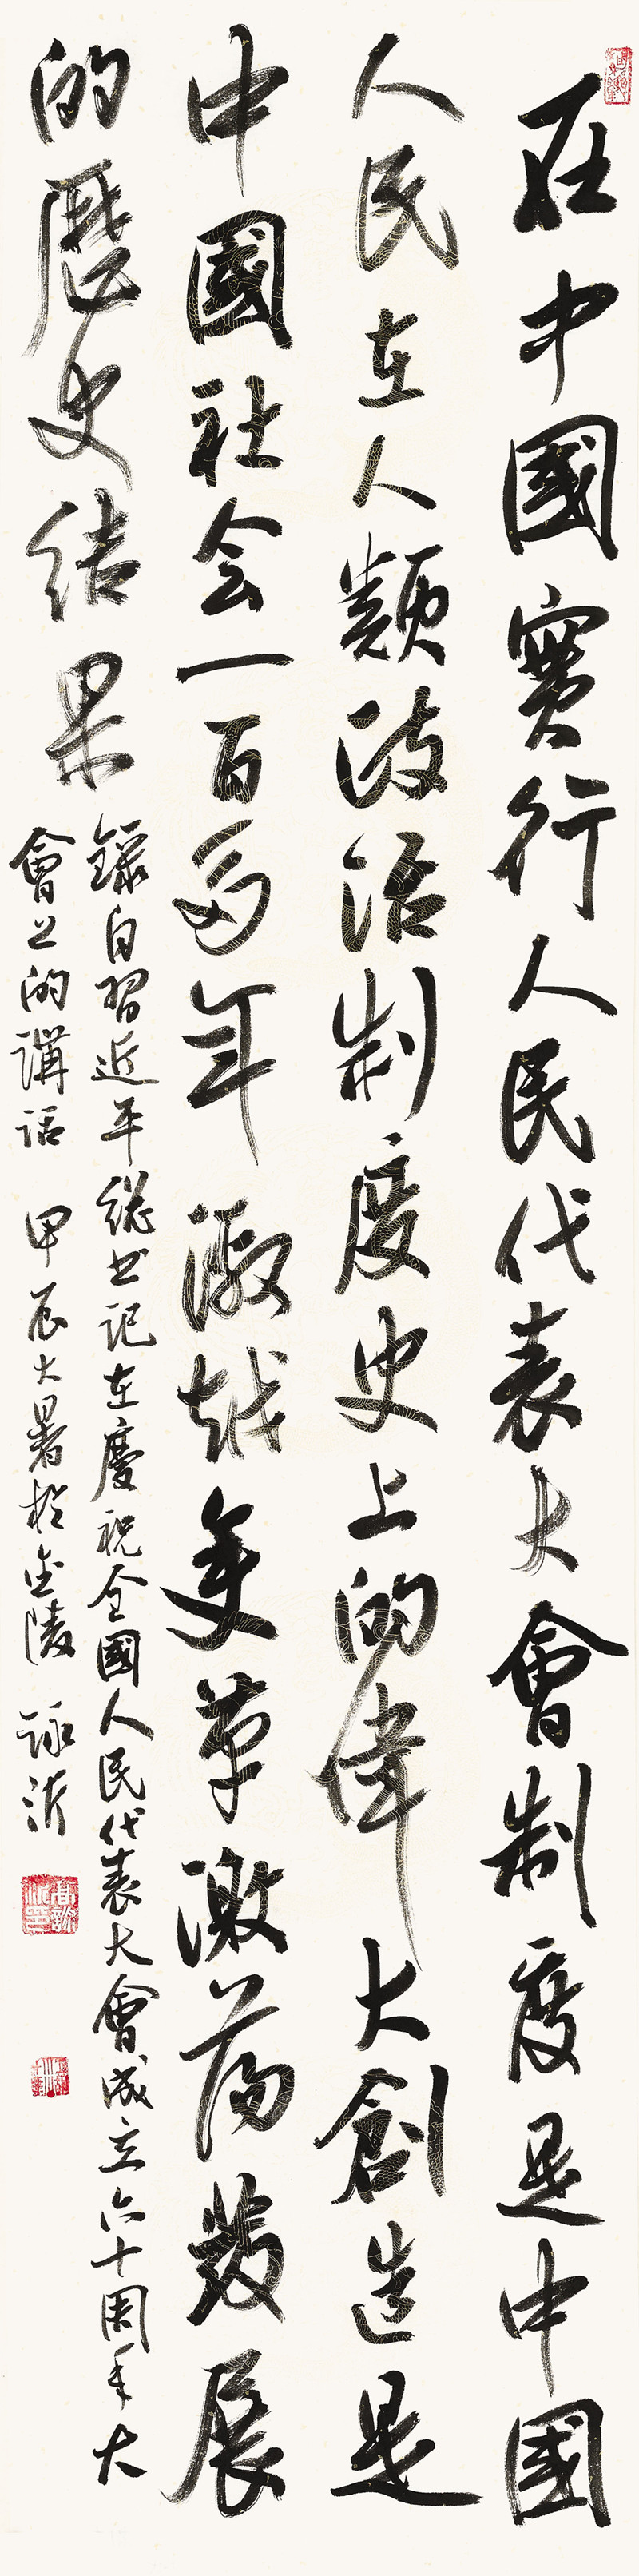 在中國實行人民代表大會制度是中國
人民在人類政治制度史上的偉大創造是
中國社会一百多年激越变革激荡發展
的歷史结果
錄自習近平總书記在慶祝全國人民代表大會成立六十周年大
會上的講话 甲辰大暑於金陵 詠沂